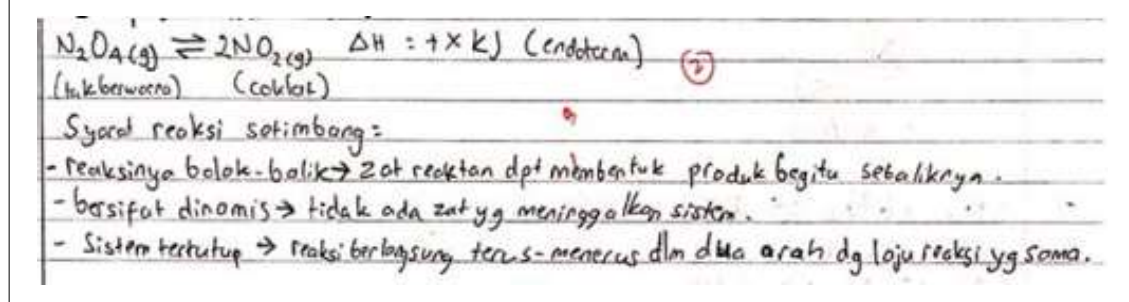 N₂O₄(g) ⇌ 2NO₂(g) ΔH : +x kJ (endoterm) ②
(tak berwarna) (coklat)
Syarat reaksi setimbang :
- reaksinya bolak-balik → zat reaktan dpt membentuk produk begitu sebaliknya.
- bersifat dinamis → tidak ada zat yg meninggalkan sistem.
- Sistem tertutup → reaksi berlangsung terus-menerus dlm dua arah dg laju reaksi yg sama.